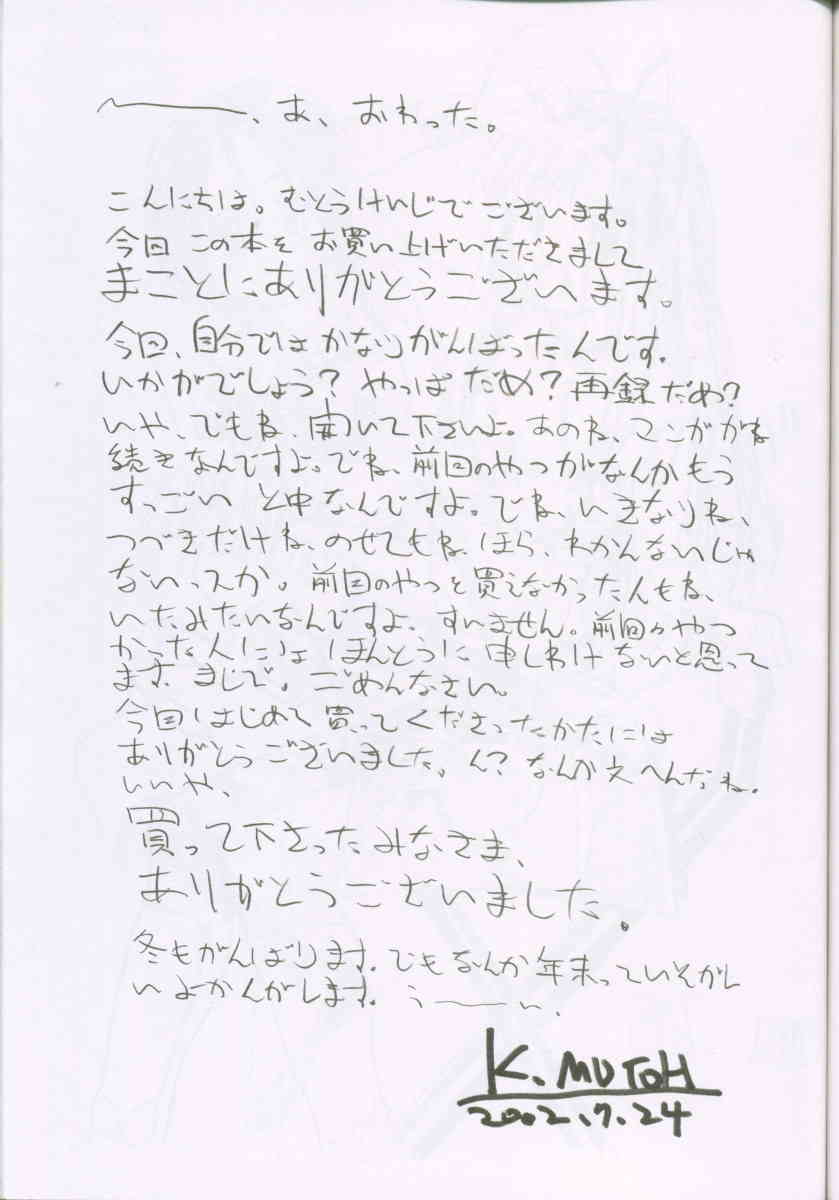 〜――、あ、おわった。
こんにちは。むとうけいじでございます。
今回この本をお買い上げいただきまして
まことにありがとうございます。
今回、自分ではかなりがんばったんです。
いかがでしょう？やっぱだめ？再録だめ？
いや、でもね、聞いて下さいよ。あのね、マンガがね
続きなんですよ。でね、前回のやつがなんかもう
すっごいと中なんですよ。でね、いきなりね、
つづきだけね、のせてもね、ほら、わかんないじゃ
ないっスか。前回のやつを買えなかった人もね、
いたみたいなんですよ、すいません。前回のやつ
かった人には ほんとうに申しわけないと思って
ます。まじで。ごめんなさい。
今回はじめて買ってくださったかたには
ありがとうございました。ん？なんか文へんだね。
いいや、
買って下さったみなさま、
ありがとうございました。
冬もがんばります。でもなんか年末っていそがし
いよかんがします。うーーい、
K. MUTOH
2002.7.24